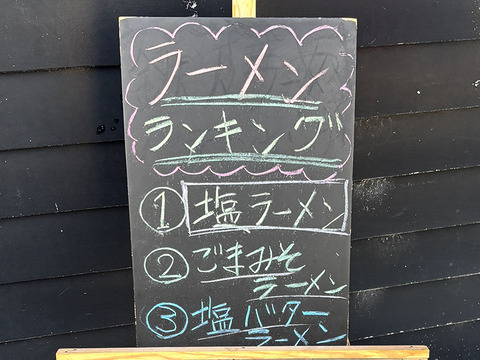 ラーメン
ランキング
① 塩ラーメン
② ごまみそ
ラーメン
③ 塩バター
ラーメン